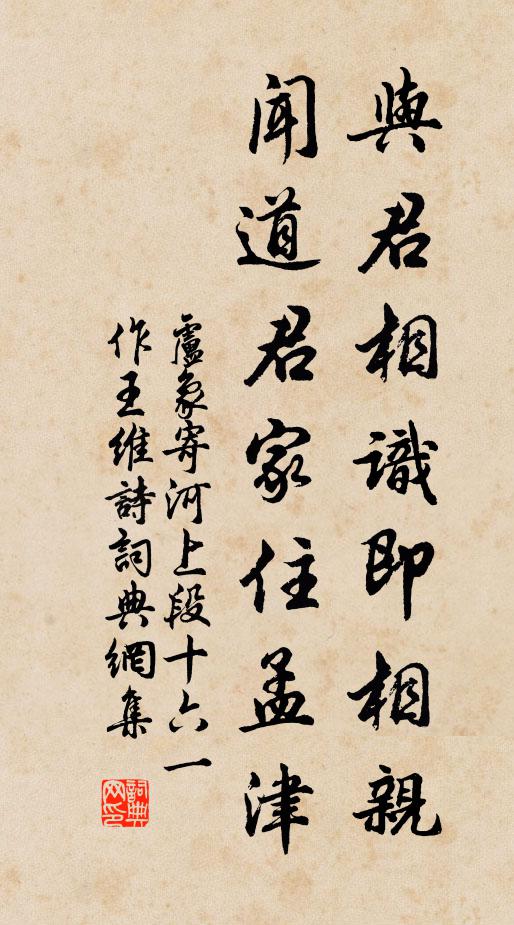 與君相識即相親
聞道君家住孟津
盧象寄河上段十六一
作王維詩詞典網集
詞典网印